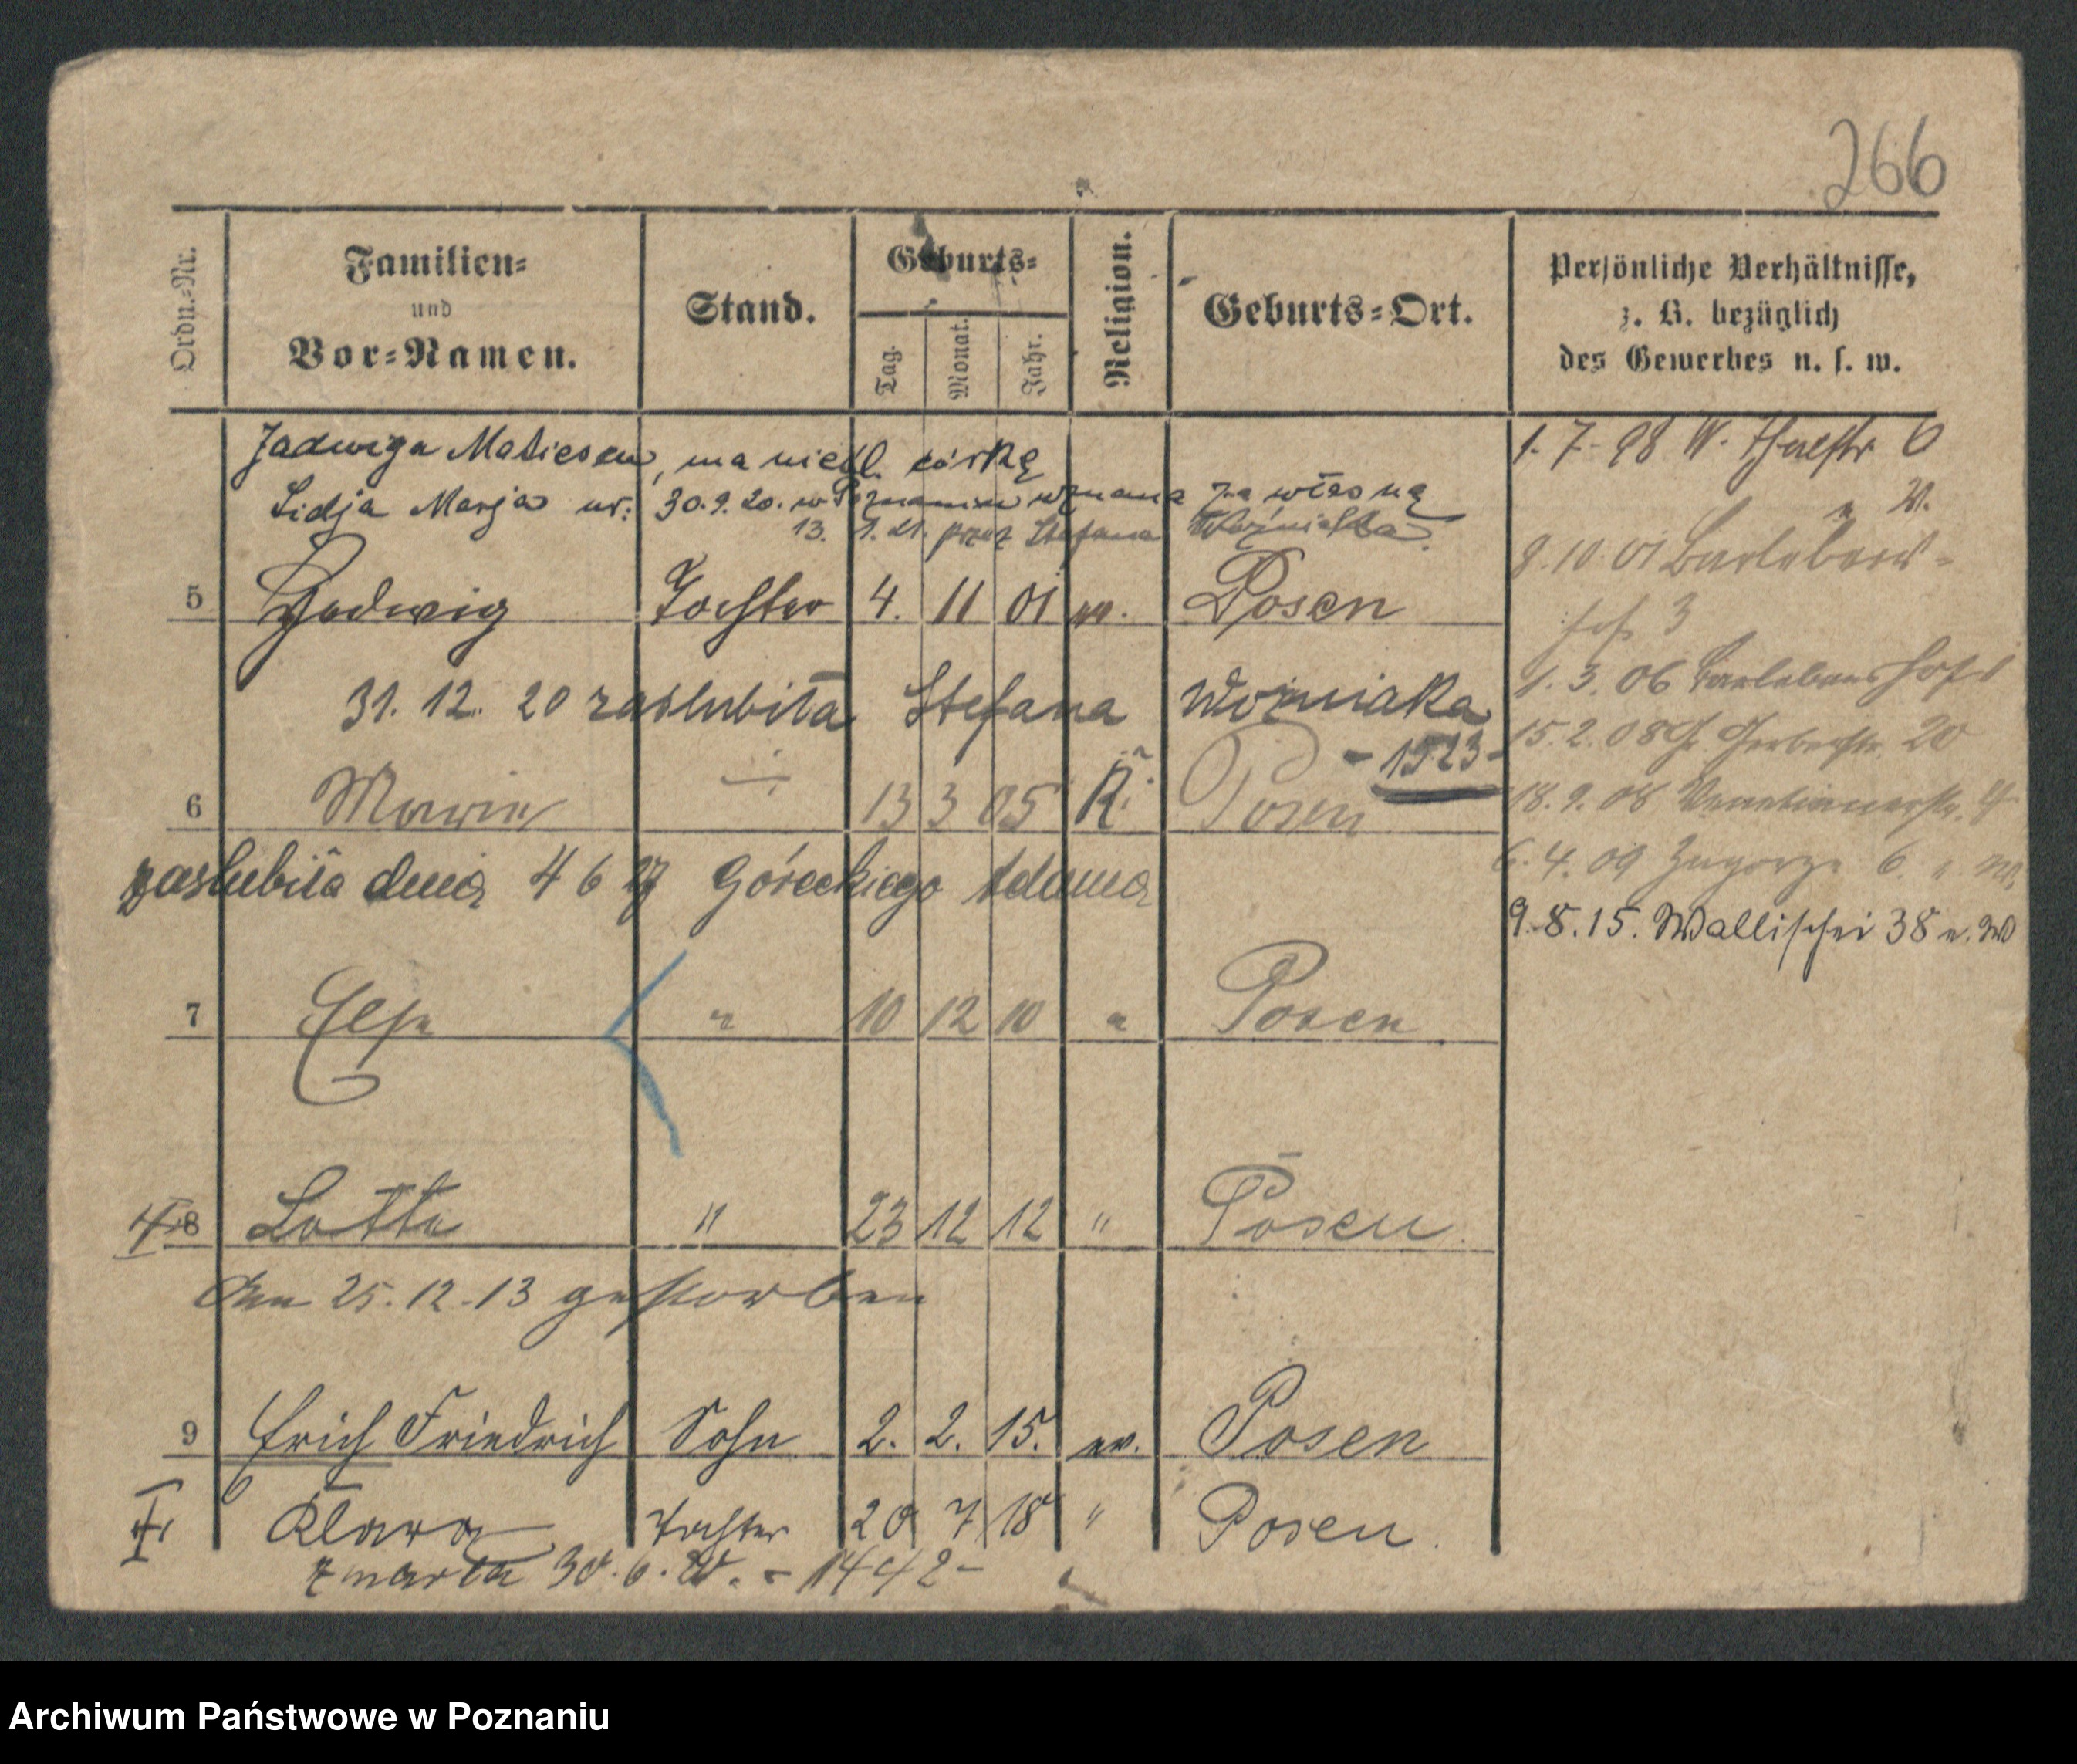 266
Ordn.-Nr.
Familien-
und
Vor-Namen.
Stand.
Geburts-
Tag.
Monat.
Jahr.
Religion.
Geburts-Ort.
Persönliche Verhältnisse,
z. B. bezüglich
des Gewerbes u. s. w.
Jadwiga Matiesen, ma nieśl. córkę
Lidja Marja ur: 30.9.20. w Poznaniu uznana za własną
13. 1. 21. przez Stefana Woźniaka.
5 Hedwig Tochter 4. 11 01 ev. Posen
31. 12. 20 zaslubiła Stefana Woźniaka
- 1523 -
6 Marie 13 3 05 K. Posen
zaslubiła dnia 4 6 27 Góreckiego Adama
7 Else " 10 12 10 " Posen
8 Lotte " 23 12 12 " Posen
Am 25.12.13 gestorben
9 Erich Friedrich Sohn 2. 2. 15. ev. Posen
Klara Tochter 20 7 18 " Posen.
zmarła 30.6.20. - 1442 -
1. 7. 98 W. 6
" W.
9. 10. 01
3
1. 3. 06
15. 2. 08 20
18. 9. 08 Venetianerstr. 4
6. 4. 09 Zagorze 6
9. 8. 15. Wallischei 38 n. W
Archiwum Państwowe w Poznaniu